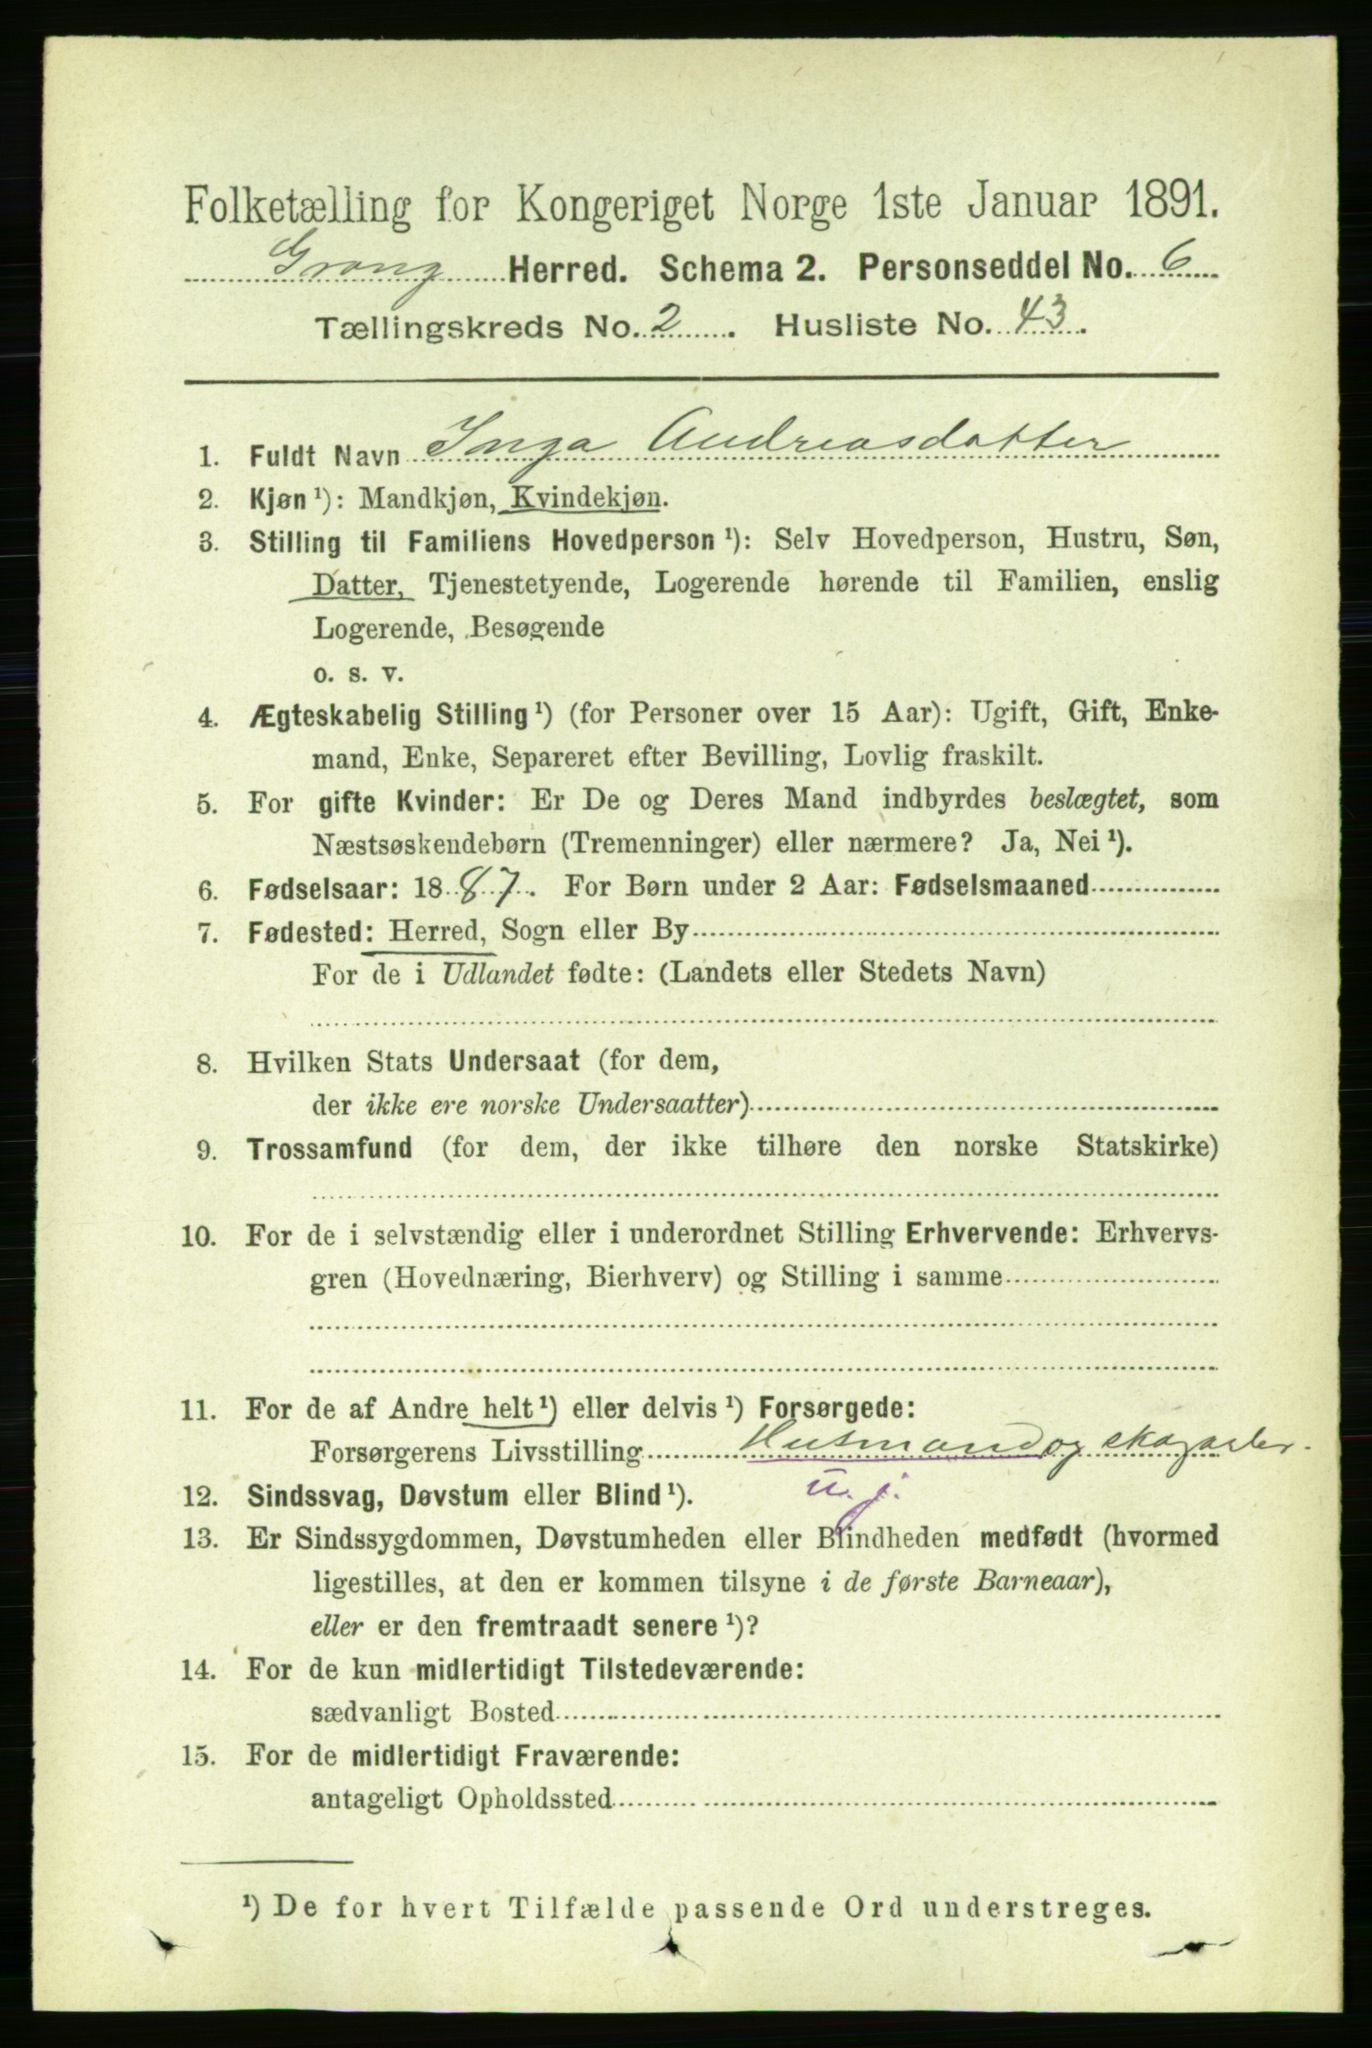 Folketælling for Kongeriget Norge 1ste Januar 1891.
Grong Herred. Schema 2. Personseddel No. 6
Tællingskreds No. 2. Husliste No. 43.
1. Fuldt Navn Inga Andreasdatter
2. Kjøn ¹): Mandkjøn, Kvindekjøn.
3. Stilling til Familiens Hovedperson ¹): Selv Hovedperson, Hustru, Søn,
Datter, Tjenestetyende, Logerende hørende til Familien, enslig
Logerende, Besøgende
o. s. v.
4. Ægteskabelig Stilling ¹) (for Personer over 15 Aar): Ugift, Gift, Enke-
mand, Enke, Separeret efter Bevilling, Lovlig fraskilt.
5. For gifte Kvinder: Er De og Deres Mand indbyrdes beslægtet, som
Næstsøskendebørn (Tremenninger) eller nærmere? Ja, Nei ¹).
6. Fødselsaar: 1887. For Børn under 2 Aar: Fødselsmaaned
7. Fødested: Herred, Sogn eller By
For de i Udlandet fødte: (Landets eller Stedets Navn)
8. Hvilken Stats Undersaat (for dem,
der ikke ere norske Undersaatter)
9. Trossamfund (for dem, der ikke tilhøre den norske Statskirke)
10. For de i selvstændig eller i underordnet Stilling Erhvervende: Erhvervs-
gren (Hovednæring, Bierhverv) og Stilling i samme
11. For de af Andre helt ¹) eller delvis ¹) Forsørgede:
Forsørgerens Livsstilling Husmand og skogarbr.
u. j.
12. Sindssvag, Døvstum eller Blind ¹).
13. Er Sindssygdommen, Døvstumheden eller Blindheden medfødt (hvormed
ligestilles, at den er kommen tilsyne i de første Barneaar),
eller er den fremtraadt senere ¹)?
14. For de kun midlertidigt Tilstedeværende:
sædvanligt Bosted
15. For de midlertidigt Fraværende:
antageligt Opholdssted
¹) De for hvert Tilfælde passende Ord understreges.